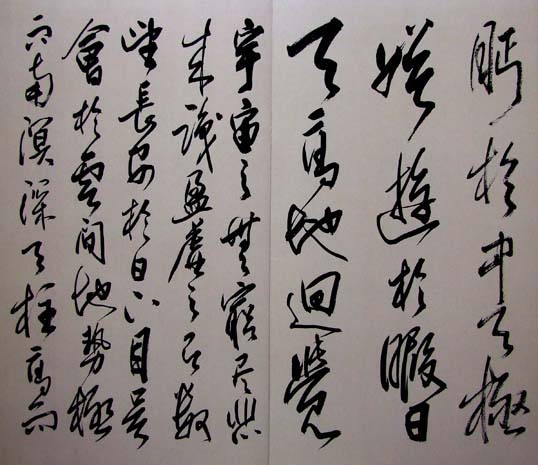 眄於中天極
娛遊於暇日
天高地迥覺
宇宙之無窮尽
來識盈虛之有數
望長安於日下目吳
會於雲間地勢極
而南溟深天柱高而